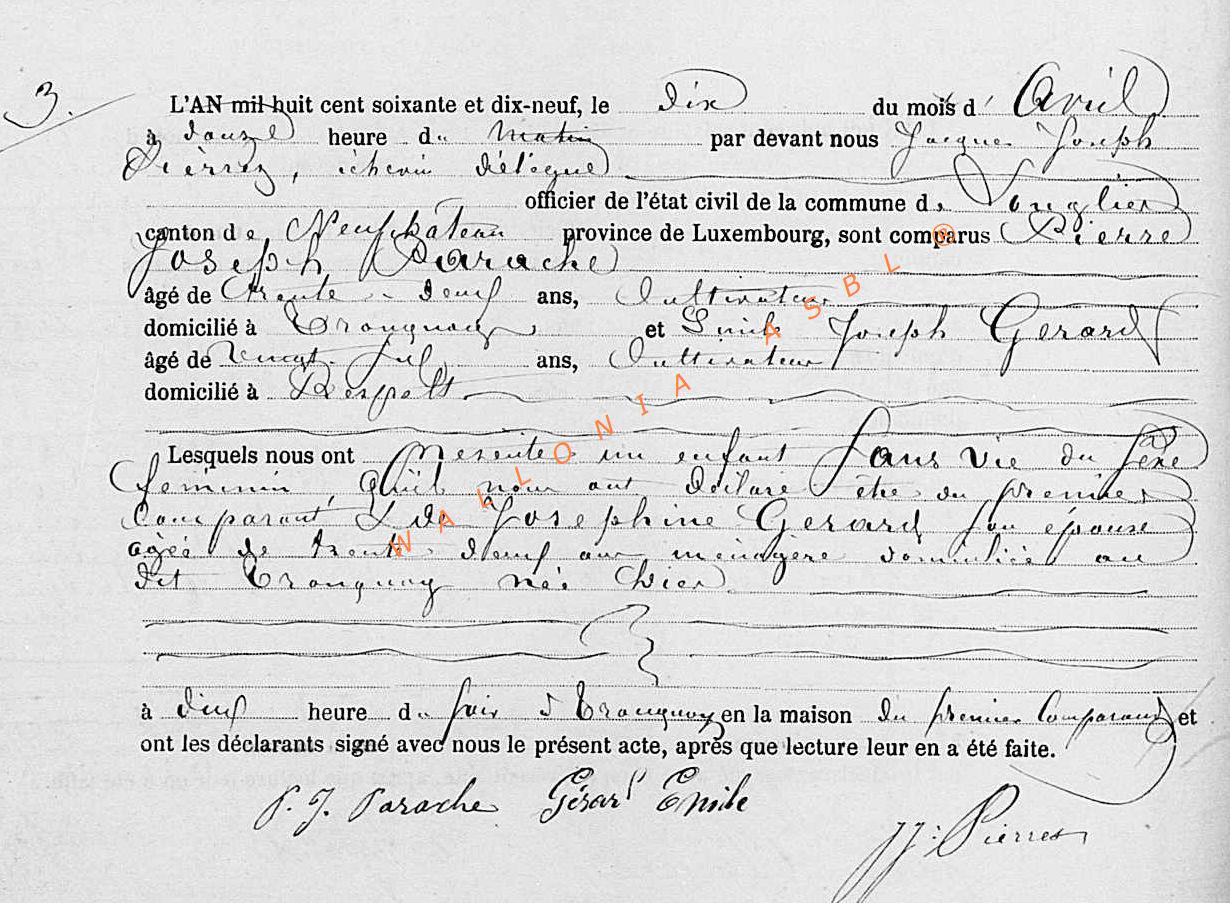 3.
L'AN mil huit cent soixante et dix-neuf, le dix du mois d' Avril
à douze heure du matin par devant nous Jacques Joseph
Pierret, échevin délégué
officier de l'état civil de la commune de Longlier
canton de Neufchâteau province de Luxembourg, sont comparus Pierre
Joseph Parache
âgé de trente-deux ans, Cultivateur
domicilié à Tronquoy et Emile Joseph Gerard
âgé de vingt ans, Cultivateur
domicilié à Respelt
Lesquels nous ont présenté un enfant Sans vie du sexe
feminin, qu'il nous ont déclaré être du premier
Comparant & de Josephine Gerard son épouse
agée de trente ans menagère domicilié au
dit Tronquoy née hier
à heure du soir à Tronquoy en la maison du premier Comparant et
ont les déclarants signé avec nous le présent acte, après que lecture leur en a été faite.
P. J. Parache Gérard Emile
JJ: Pierret
WALLONIA ASBL ®